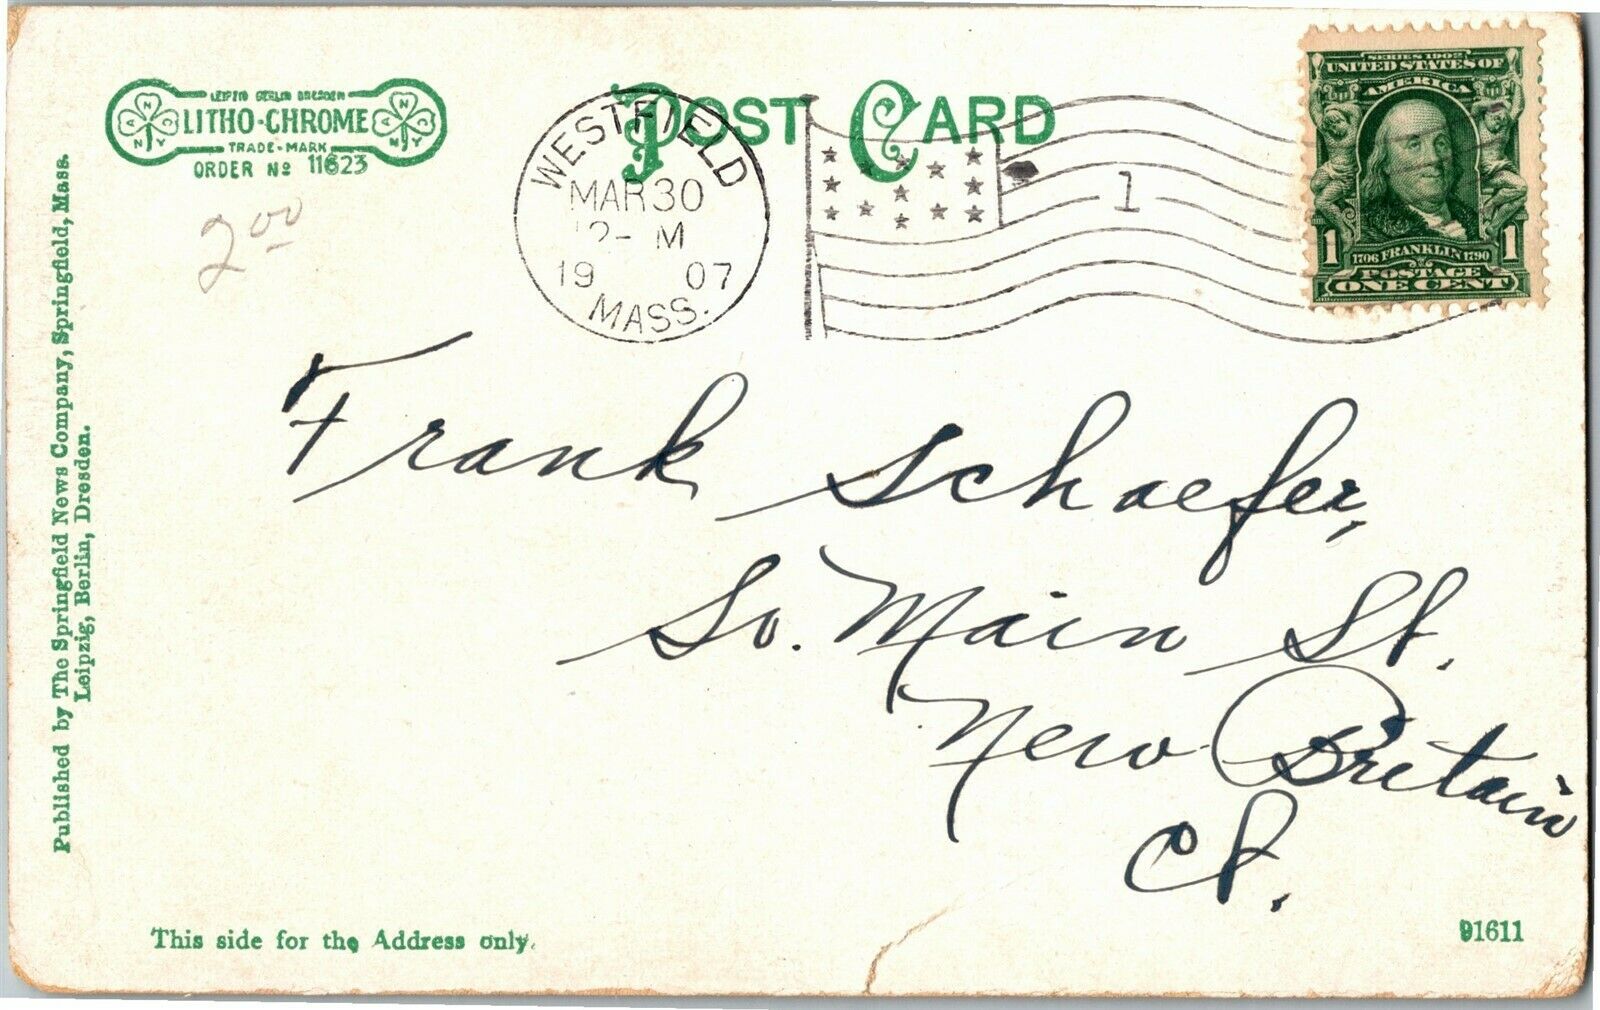 LEIPZIG BERLIN DRESDEN
LITHO-CHROME
TRADE-MARK
ORDER No 11623
A N C
N Y
A N C
N Y
POST CARD
WESTFIELD
MAR 30
12- M
19 07
MASS.
1
SERIES 1902
UNITED STATES OF
AMERICA
1 1
1706 FRANKLIN 1790
POSTAGE
ONE CENT
2 00
Published by The Springfield News Company, Springfield, Mass.
Leipzig, Berlin, Dresden.
Frank Schaefer,
So. Main St.
New Britain
Ct.
This side for the Address only.
91611